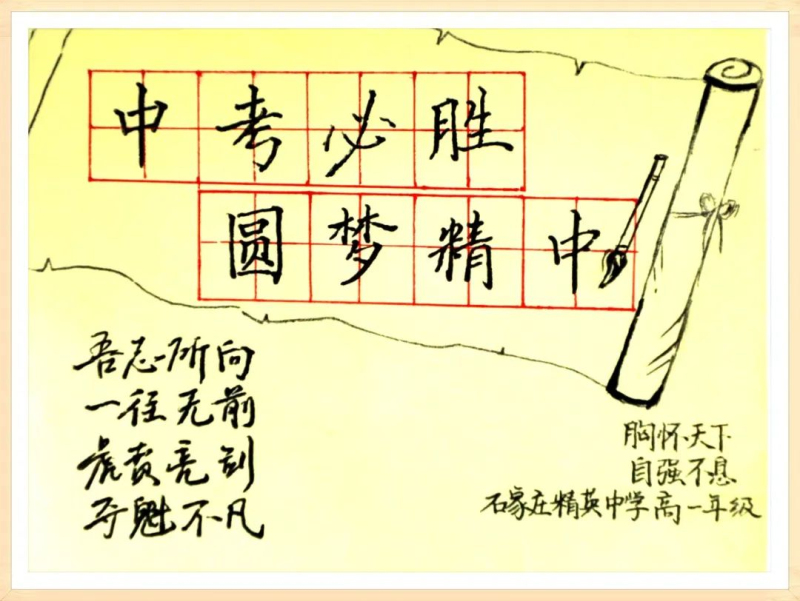 中考必胜
圆梦精中
吾志所向
一往无前
虎贲亮剑
夺魁不凡
胸怀天下
自强不息
石家庄精英中学高一年级